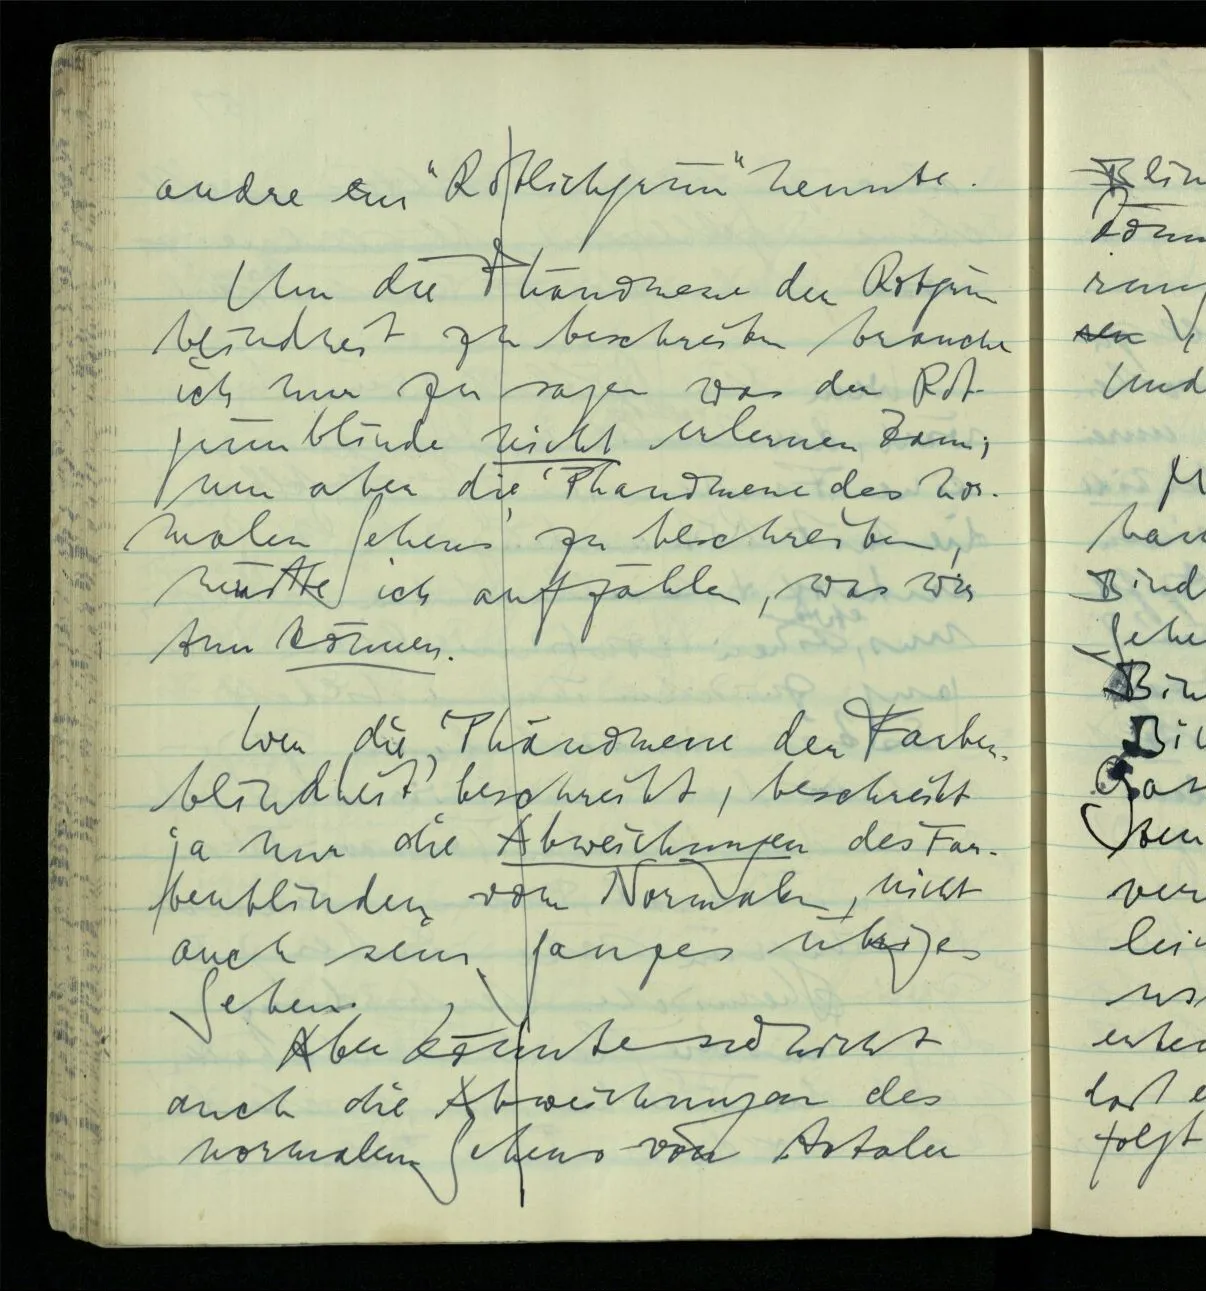 andre ein "Rötlichgrün" nennte.
Um die Phänomene der Rotgrün
blindheit zu beschreiben brauche
ich nur zu sagen was der Rot-
grünblinde nicht erlernen kann;
um aber die 'Phänomene des nor-
malen Sehens' zu beschreiben,
müßte ich aufzählen, was wir
tun können.
Wer die 'Phänomene der Farben-
blindheit' beschreibt, beschreibt
ja nur die Abweichungen des Far-
benblinden vom Normalen, nicht
auch sein ganzes übriges
Sehen.
Aber könnte sie nicht
auch die Abweichungen des
normalen Sehens von totaler
Blin
könn
Und